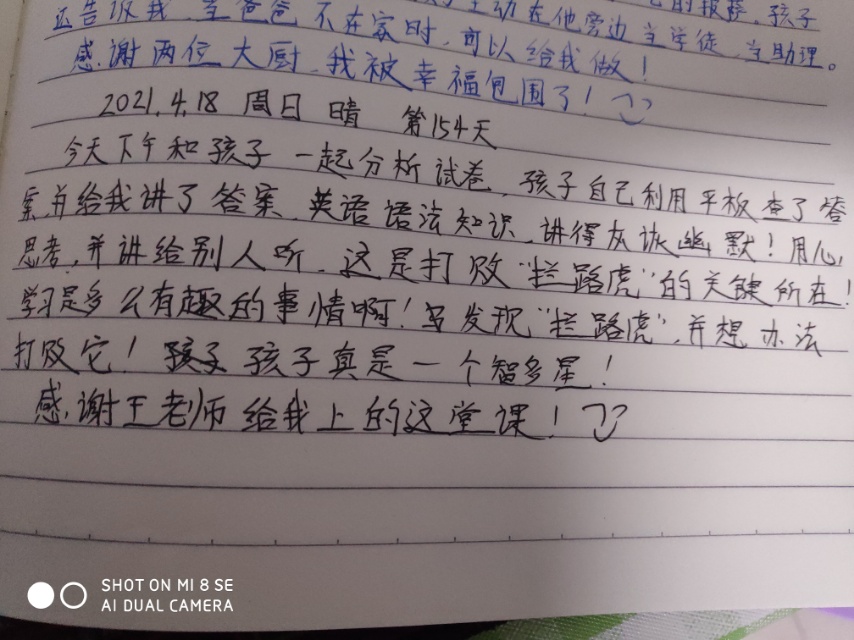 还告诉我,当爸爸不在家时,可以给我做!
主动在他旁边当学徒,当助理。
的报答,孩子
感谢两位大厨,我被幸福包围了!
2021.4.18 周日 晴 第154天
今天下午和孩子一起分析试卷,孩子自己利用平板查了答
案,并给我讲了答案、英语语法知识,讲得灰诙幽默!用心
思考,并讲给别人听,这是打败"拦路虎"的关键所在!
学习是多么有趣的事情啊!当发现"拦路虎",并想办法
打败它!孩子真是一个智多星!
感谢王老师给我上的这堂课!
SHOT ON MI 8 SE
AI DUAL CAMERA